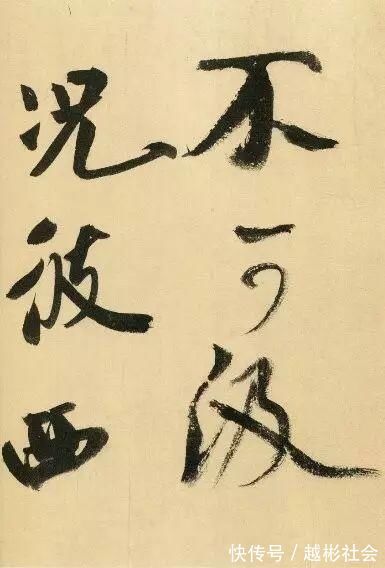 不可汲
况彼西
快传号/越彬社会